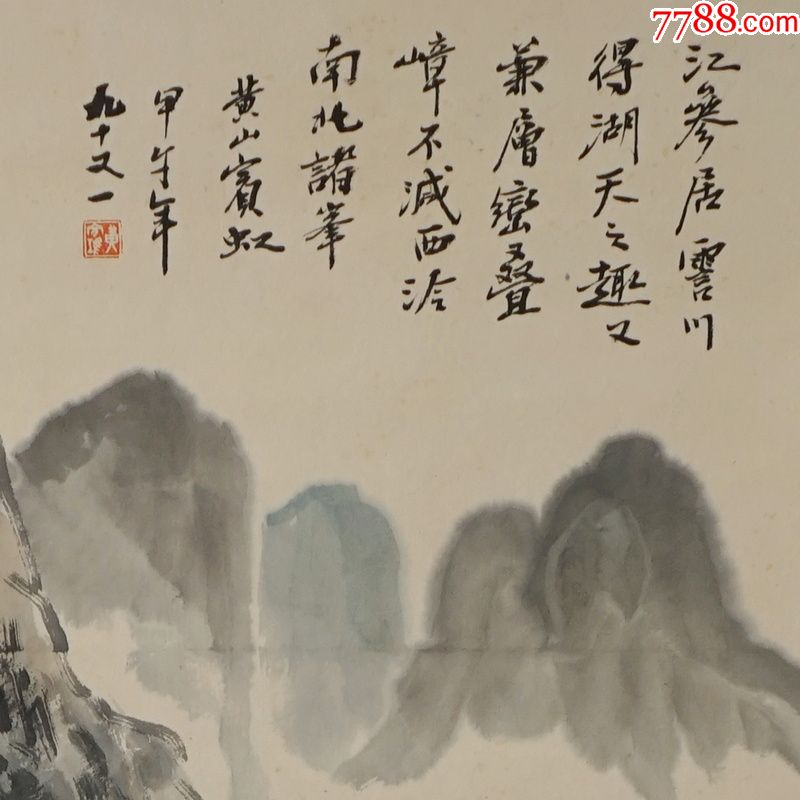 7788.com
江參居霅川
得湖天之趣又
兼層巒叠
嶂不减西泠
南北諸峯
黄山賓虹
甲午年
九十又一